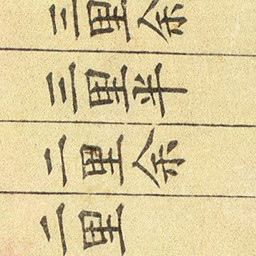 三里余
三里半
二里余
二里